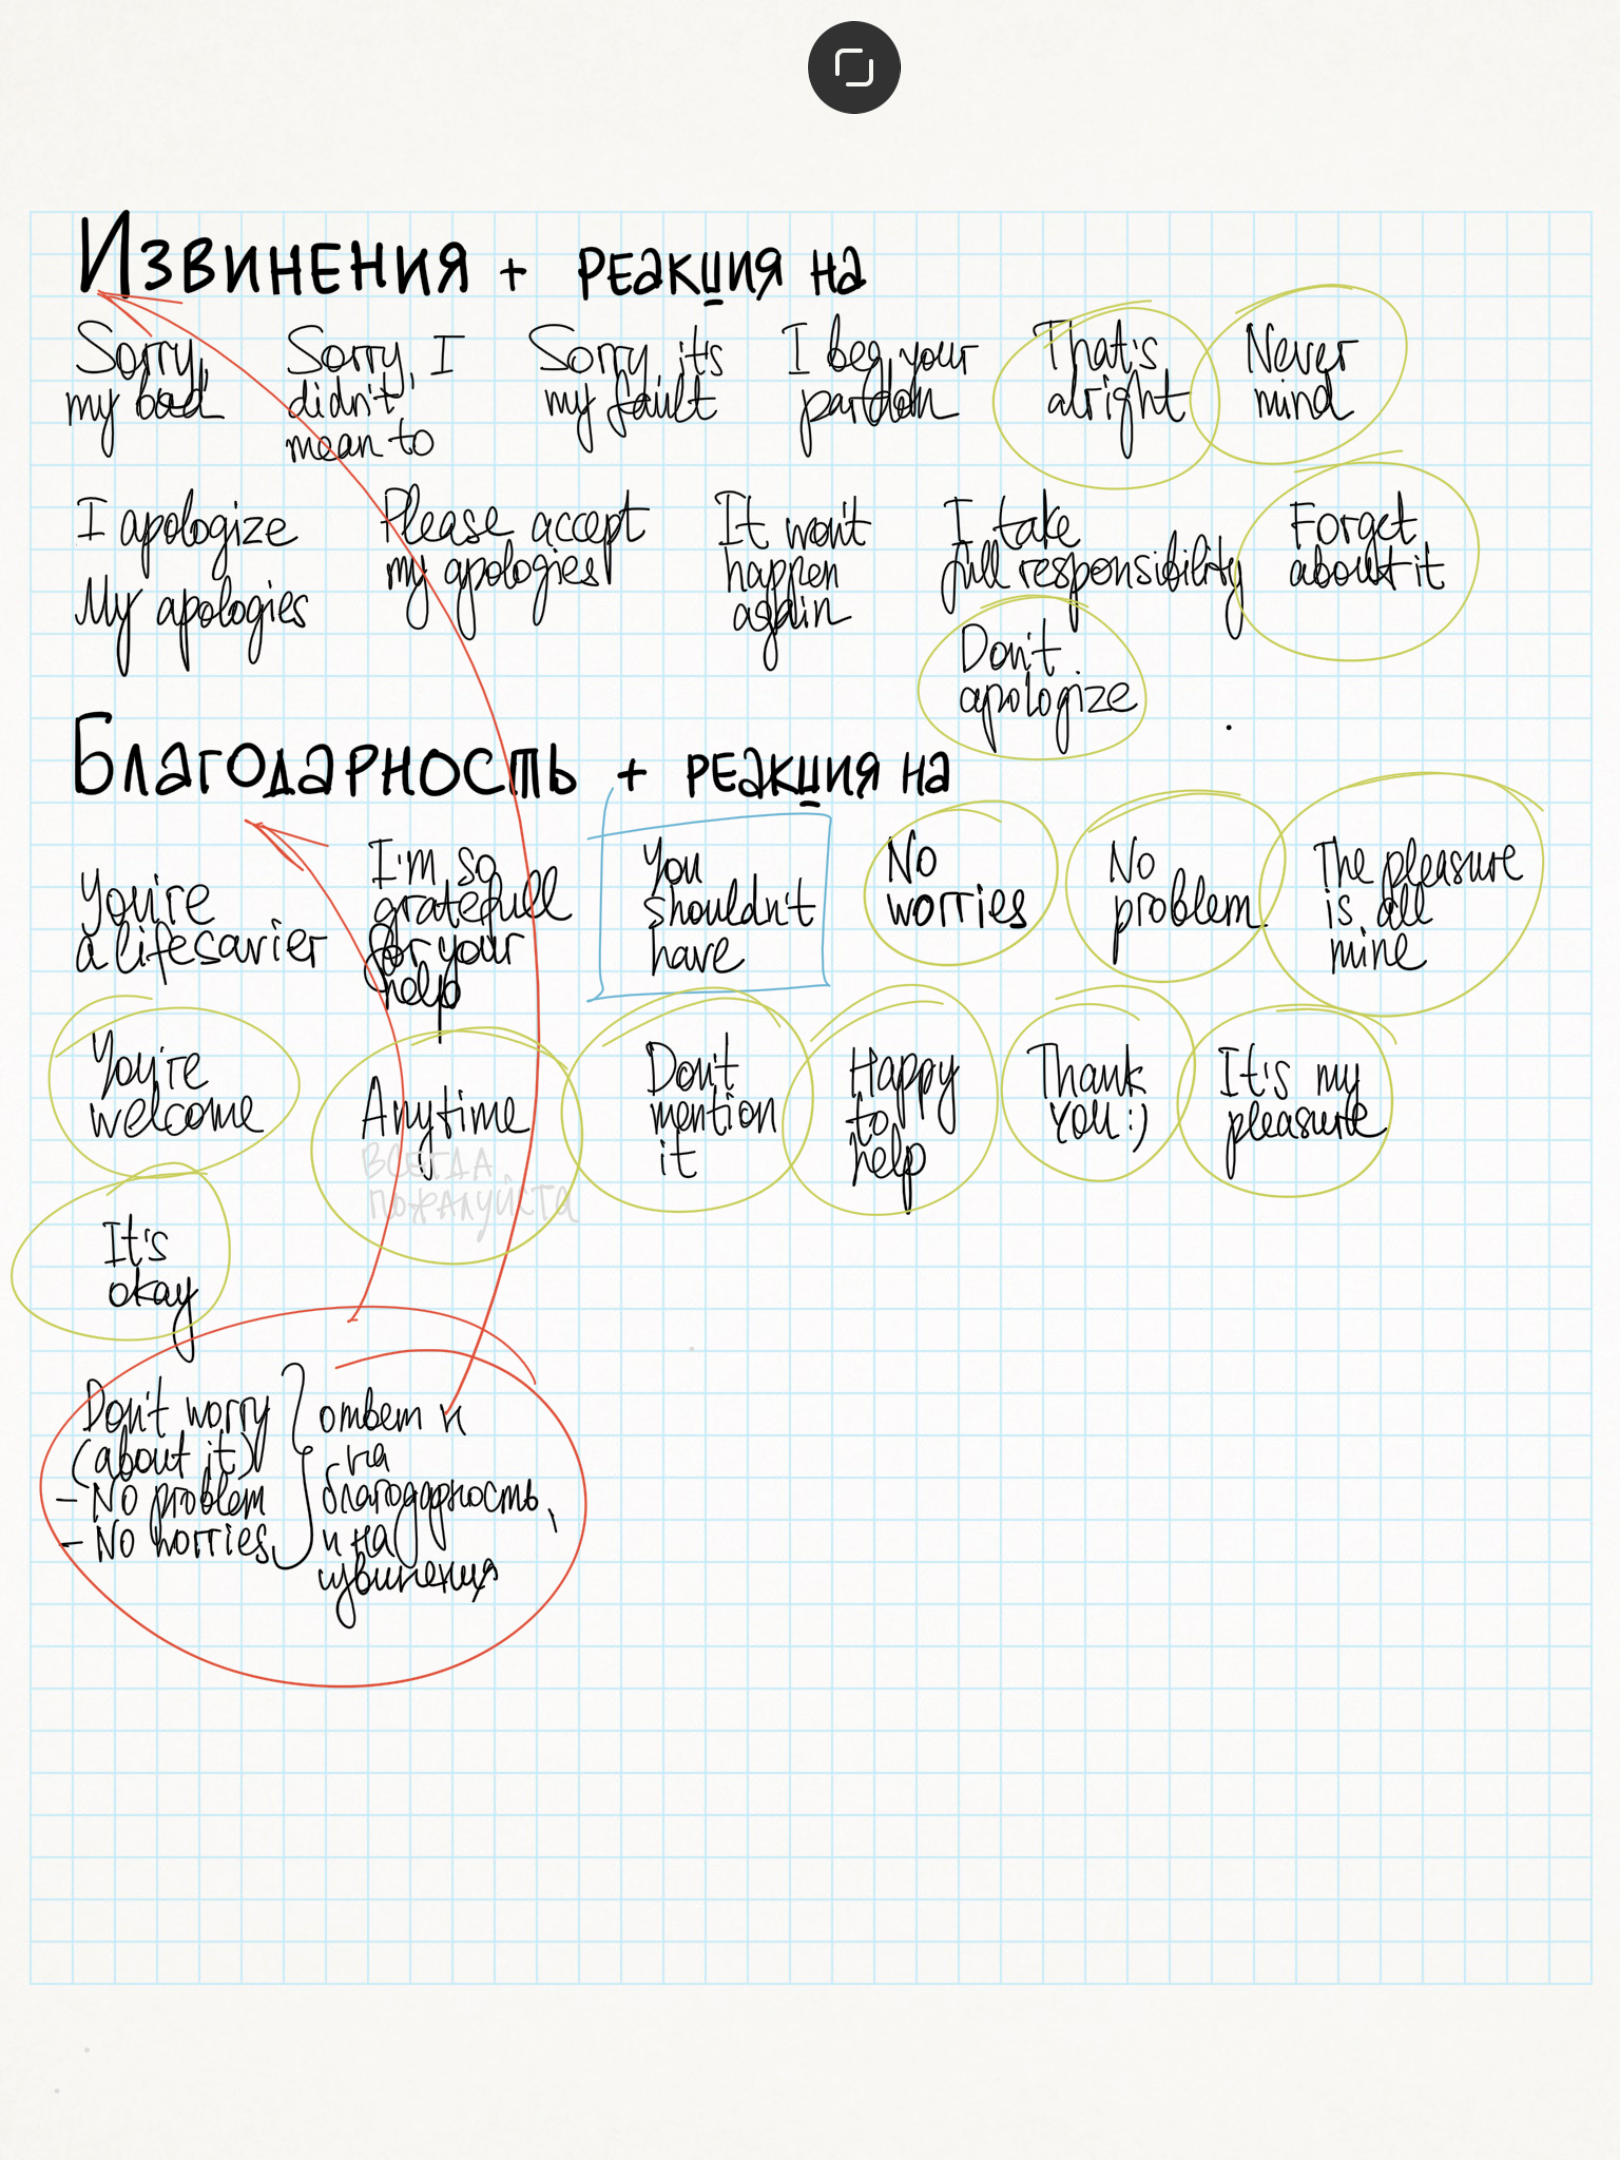 Извинения + реакция на
Sorry,
my bad
Sorry, I
didn't
mean to
Sorry, it's
my fault
I beg your
pardon
That's
alright
Never
mind
I apologize
My apologies
Please accept
my apologies
It won't
happen
again
I take
full responsibility
Forget
about it
Don't
apologize
Благодарность + реакция на
You're
a lifesavier
I'm so
gratefull
for your
help
You
shouldn't
have
No
worries
No
problem
The pleasure
is all
mine
You're
welcome
Anytime
всегда
пожалуйста
Don't
mention
it
Happy
to
help
Thank
you :)
It's my
pleasure
It's
okay
Don't worry
(about it)
- No problem
- No worries
ответ и
на
благодарность,
и на
извинения